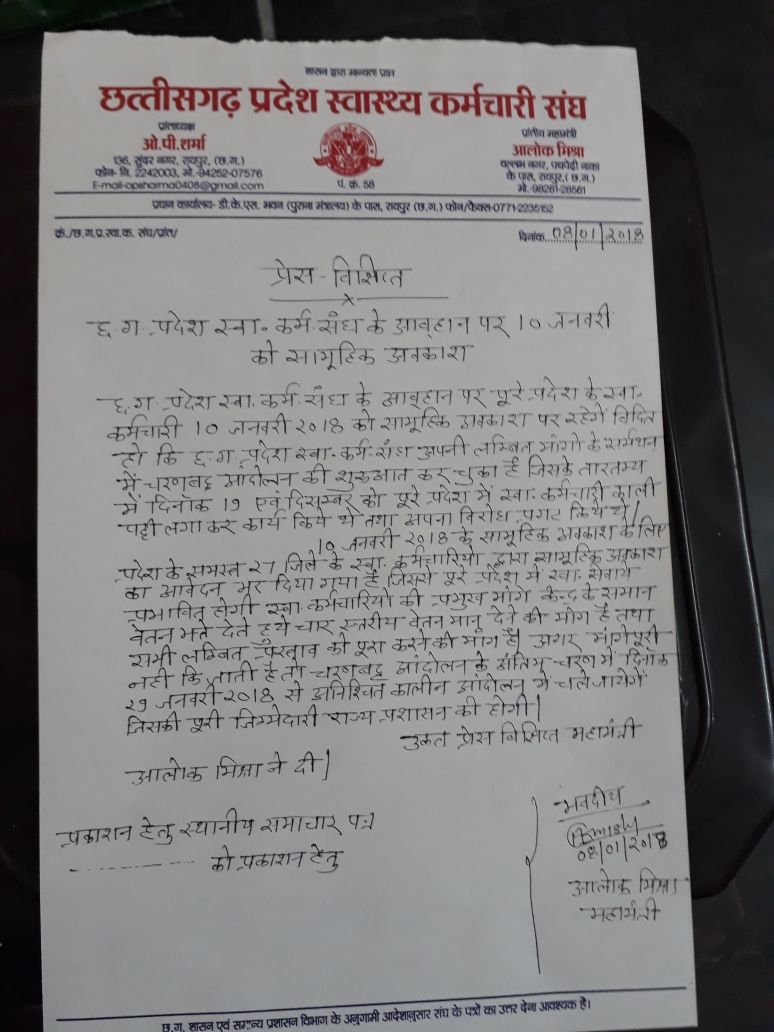 शासन द्वारा मान्यता प्राप्त
छत्तीसगढ़ प्रदेश स्वास्थ्य कर्मचारी संघ
प्रांताध्यक्ष
ओ.पी.शर्मा
136, सुंदर नगर, रायपुर, (छ.ग.)
फोन- नि. 2242003, मो.-94252-07576
E-mail-opsharma0408@gmail.com
पं. क्र. 58
प्रांतीय महामंत्री
आलोक मिश्रा
वल्लभ नगर, पचपेढ़ी नाका
के पास, रायपुर,( छ.ग.)
मो.-98261-28561
प्रधान कार्यालय- डी.के.एस. भवन (पुराना मंत्रालय) के पास, रायपुर (छ.ग.) फोन/फैक्स-0771-2235152
क्रं./छ.ग.प्र.स्वा.क. संघ/प्रांत/
दिनांक 08/01/2018
प्रेस-विज्ञप्ति
छ.ग. प्रदेश स्वा. कर्म. संघ के आव्हान पर 10 जनवरी
को सामूहिक अवकाश
छ.ग. प्रदेश स्वा. कर्म. संघ के आव्हान पर पूरे प्रदेश के स्वा.
कर्मचारी 10 जनवरी 2018 को सामूहिक अवकाश पर रहेगें विदित
हो कि छ.ग. प्रदेश स्वा. कर्म. संघ अपनी लम्बित मांगो के समर्थन
में चरणबद्ध आंदोलन की शुरुआत कर चुका है जिसके तारतम्य
में दिनाँक 19 एवं दिसम्बर को पूरे प्रदेश में स्वा. कर्मचारी काली
पट्टी लगा कर कार्य किये थे तथा अपना विरोध प्रगट किये थे।
10 जनवरी 2018 के सामूहिक अवकाश के लिए
प्रदेश के समस्त 27 जिले के स्वा. कर्मचारियो द्वारा सामूहिक अवकाश
का आवेदन भर दिया गया है जिससे पूरे प्रदेश में स्वा. सेवायें
प्रभावित होगी स्वा. कर्मचारियो की प्रमुख मांग केन्द्र के समान
वेतन भत्ते देते हुये चार स्तरीय वेतन मान देने की मांग है तथा
सभी लम्बित को पूरा करने की मांग है। अगर मांगे पूरी
नही कि जाती है तो चरणबद्ध आंदोलन के अंतिम चरण में दिनाँक
29 जनवरी 2018 से अनिश्चित कालीन आंदोलन में चले जायेगें
जिसकी पूरी जिम्मेदारी राज्य प्रशासन की होगी।
उक्त प्रेस विज्ञप्ति महामंत्री
आलोक मिश्रा ने दी।
प्रकाशन हेतु स्थानीय समाचार पत्र
को प्रकाशन हेतु
भवदीय
08/01/2018
आलोक मिश्रा
महामंत्री
छ.ग. शासन एवं सामान्य प्रशासन विभाग के अनुगामी आदेशानुसार संघ के पत्रों का उत्तर देना आवश्यक है।